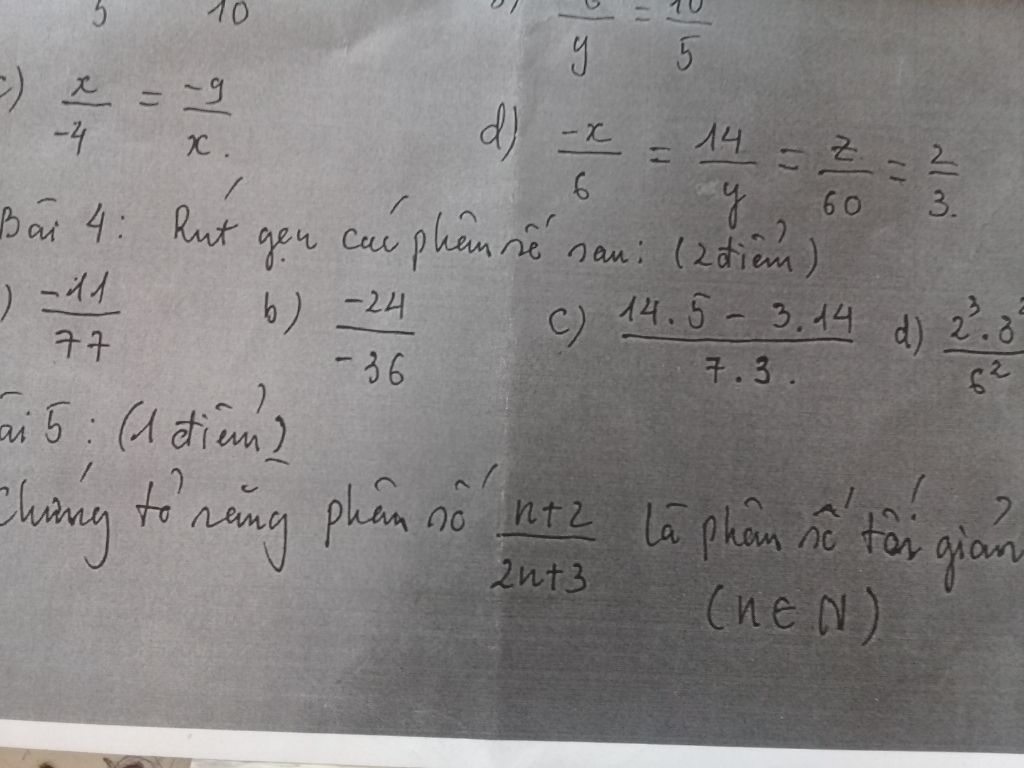 5 10 b) 6/y = 10/5
c) x/-4 = -9/x.
d) -x/6 = 14/y = z/60 = 2/3.
Bài 4: Rút gọn các phân số sau: (2 điểm)
) -11/77 b) -24/-36 c) 14.5 - 3.14/7.3. d) 2³.3/6²
ài 5: (1 điểm)
Chứng tỏ rằng phân số n+2/2n+3 là phân số tối giản
(n ∈ N)